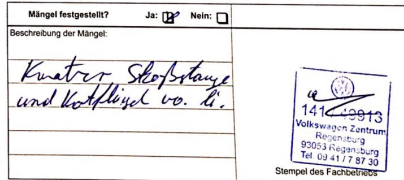 Mängel festgestellt? Ja: Nein:
Beschreibung der Mängel:
Kratzer Stoßstange
und Kotflügel vo. li.
Volkswagen Zentrum
Regensburg
93053 Regensburg
Tel. 09 41 / 7 87 30
Stempel des Fachbetriebs